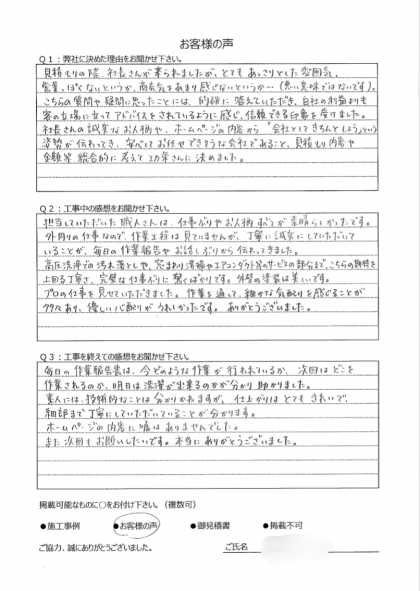 お客様の声
Q1:弊社に決めた理由をお聞かせ下さい。
見積もりの際、社長さんが来られましたが、とてもあっさりとした雰囲気。
営業っぽくないというか、商売気をあまり感じないというか…(悪い意味ではないです)。
こちらの質問や疑問に思ったことには、的確に答えていただき、自社の利益よりも
客の立場に立ってアドバイスをされているように感じ、信頼できる印象を受けました。
社長さんの誠実なお人柄や、ホームページの内容から"会社としてきちんとしようという
姿勢が伝わってき、安心してお任せできそうな会社であること、見積もり内容や
金額等 総合的に考えて さんに決めました。
Q2:工事中の感想をお聞かせ下さい。
担当していただいた職人さんは、仕事ぶりやお人柄 すべてが素晴らしかったです。
外周りの仕事なので、作業工程は見ていませんが、丁寧に誠実にしていただいて
いることが、毎日の作業報告やお話しぶりから伝わってきました。
高圧洗浄での汚れ落としや、 清掃やエアコンダクト等のサービスの部分まで、こちらの期待を
上回る丁寧さ、完璧な仕事ぶりに驚くばかりです。外壁の塗装は美しいです。
プロの仕事を見せていただきました。作業を通して、細やかな気配りを感じることが
多々あり、優しい心配りがうれしかったです。ありがとうございました。
Q3:工事を終えての感想をお聞かせ下さい。
毎日の作業報告書は、今どのような作業が行われているか、次回はどこを
作業されるのか、明日は洗濯が出来るのかが分かり助かりました。
素人には、技術的なことは分かりかねますが、仕上がりはとてもきれいで、
細部まで丁寧にしていただいていることが分かります。
ホームページの内容に嘘はありませんでした。
また次回もお願いしたいです。本当にありがとうございました。
掲載可能なものに○をお付け下さい。(複数可)
●施工事例 ●お客様の声 ●御見積書 ●掲載不可
ご協力、誠にありがとうございました。 ご氏名